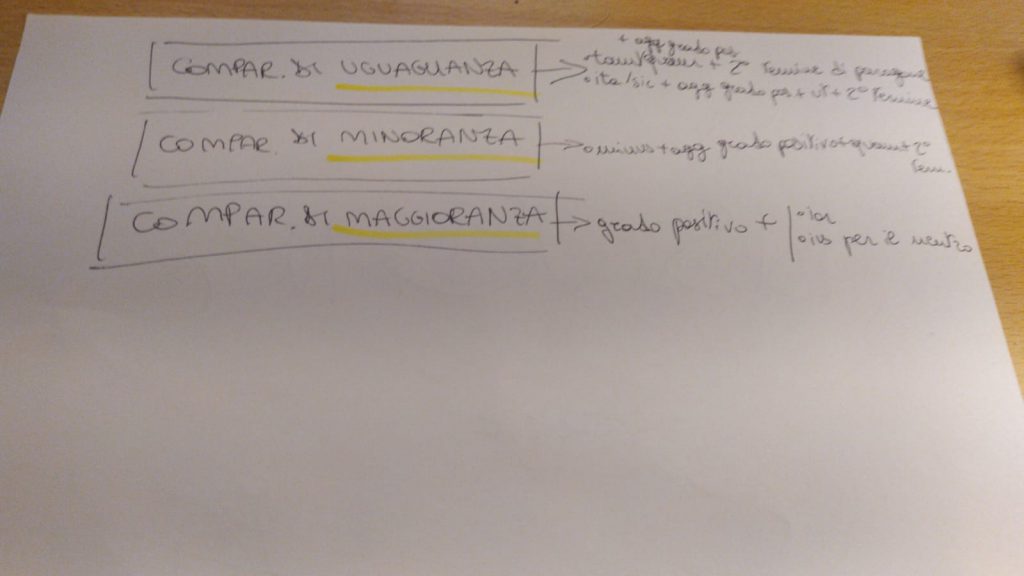 COMPAR. DI UGUAGLIANZA
+ agg grado pos
• tam/quam + 2° Termine di paragone
• ita/sic + agg grado pos + ut + 2° Termine
COMPAR. DI MINORANZA
• minus + agg grado positivo + quam + 2°
Term.
COMPAR. DI MAGGIORANZA
grado positivo +
• ior
• ius per il neutro